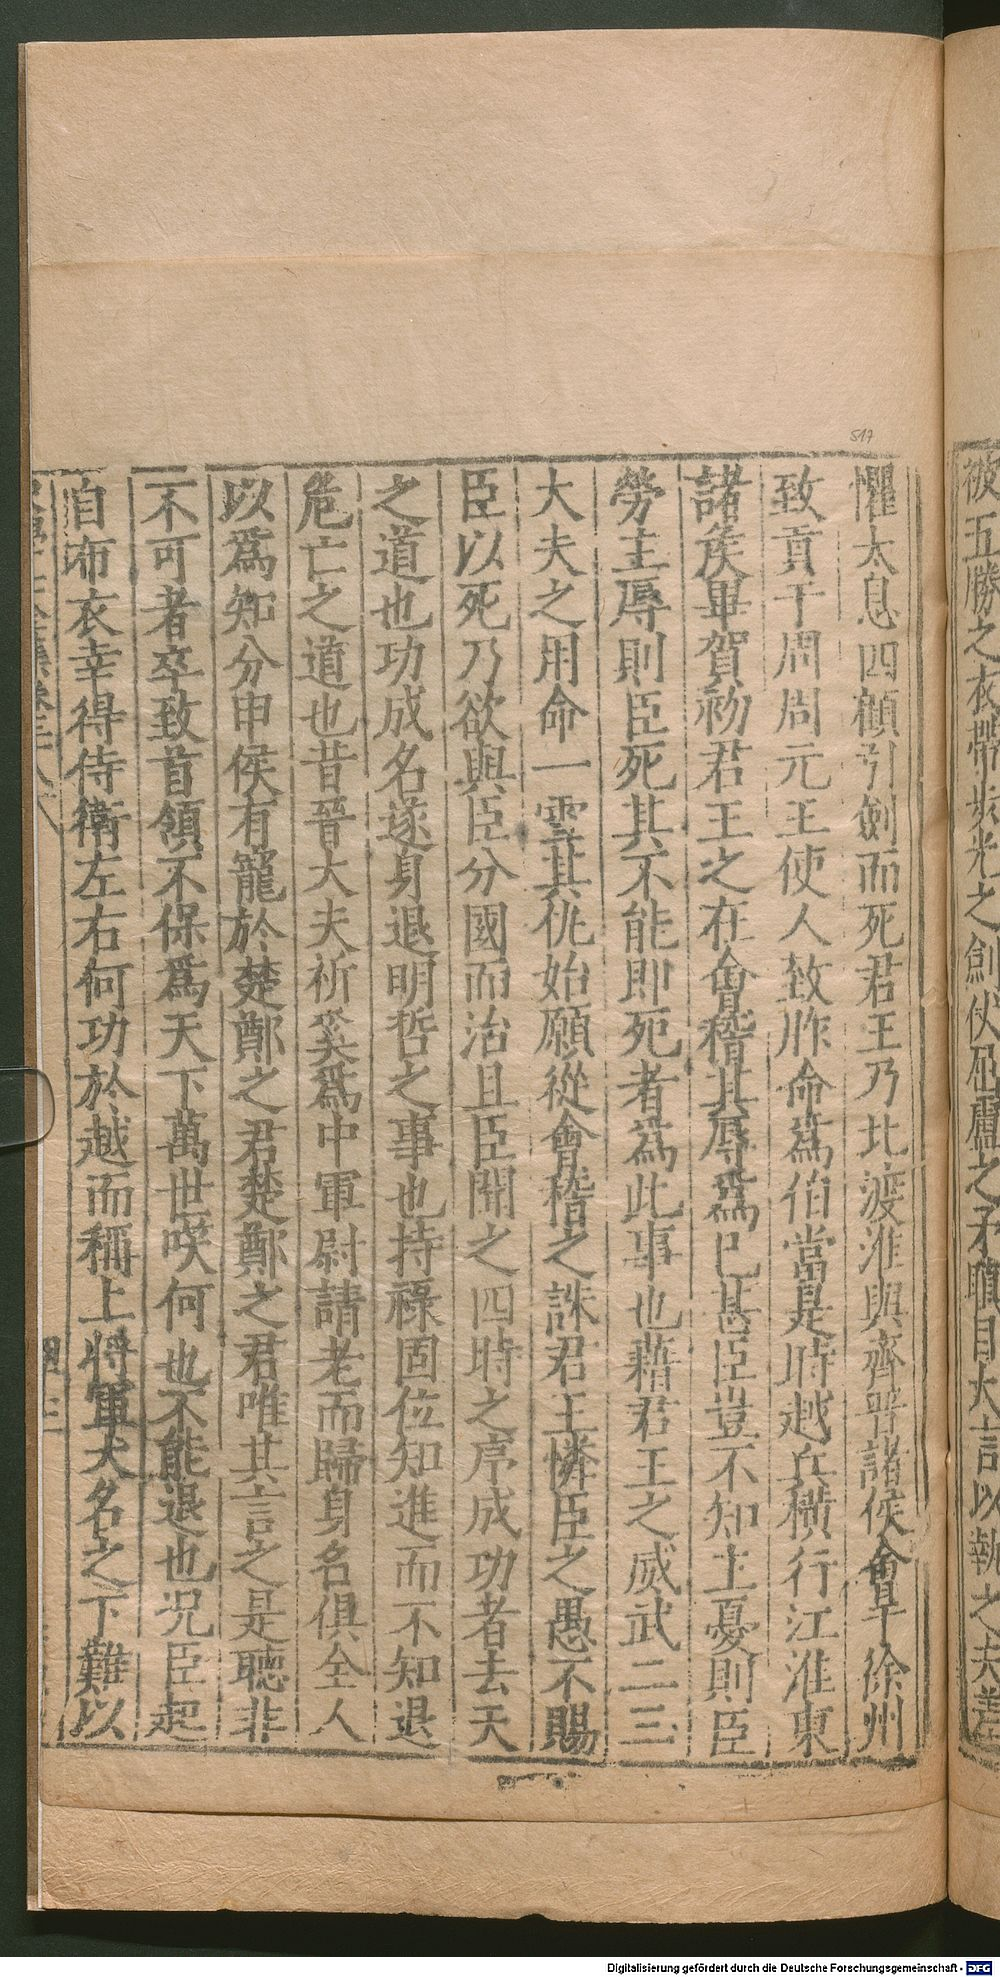 被五勝之衣帶步光之劍仗屈盧之矛瞋目大言以執之夫差
517
懼太息四顧引劍而死君王乃北渡淮與齊晉諸侯會旱徐州
致貢于周周元王使人致胙命爲伯當是時越兵横行江淮東
諸侯畢賀初君王之在會稽其辱爲已甚臣豈不知主憂則臣
勞主辱則臣死其不能即死者爲此事也藉君王之威武二三
大夫之用命一雪其仇始願從會稽之誅君王憐臣之愚不賜
臣以死乃欲與臣分國而治且臣聞之四時之序成功者去天
之道也功成名遂身退明哲之事也持祿固位知進而不知退
危亡之道也昔晉大夫祈奚爲中軍尉請老而歸身名俱全人
以爲知分申侯有寵於楚鄭之君楚鄭之君唯其言之是聽非
不可者卒致首領不保爲天下萬世嘆何也不能退也况臣起
自布衣幸得侍衛左右何功於越而稱上將軍大名之下難以
Digitalisierung gefördert durch die Deutsche Forschungsgemeinschaft - DFG